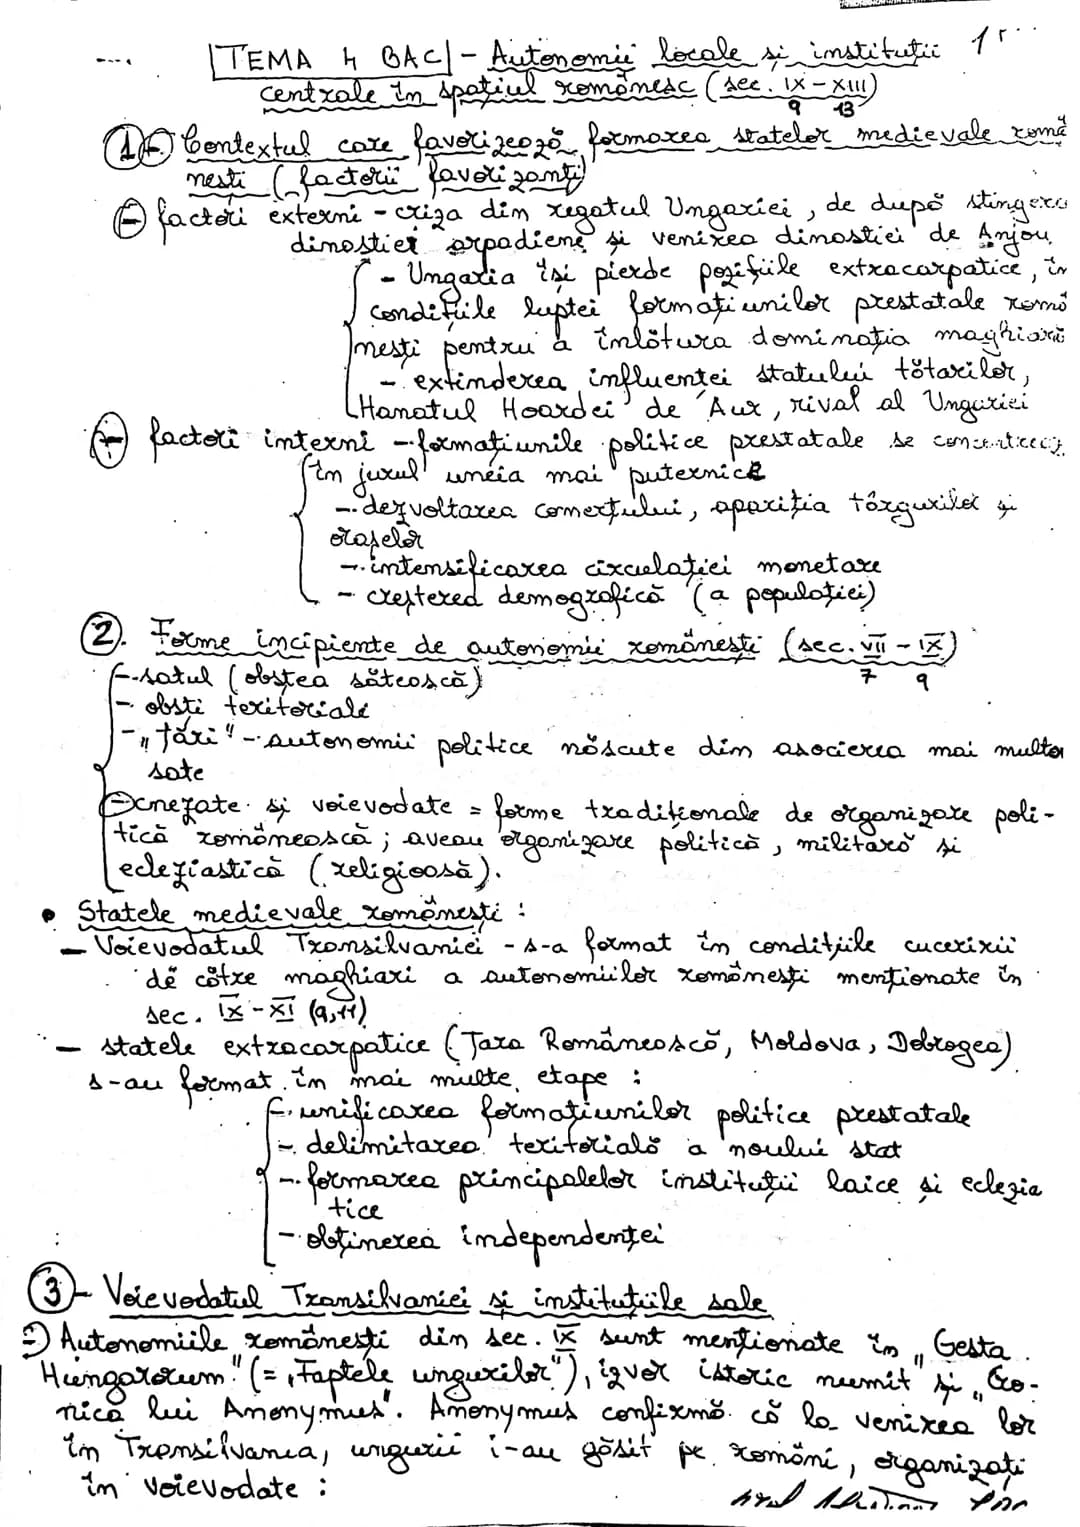 TEMA 4 BAC - Autonomii locale și instituții
centrale în spațiul românesc (sec. IX - XIII)
9 13
1 Contextul care favorizează formarea statelor medievale româ
nești (factorii favorizanți)
factori externi - criza din regatul Ungariei, de după stingerea
dinastiei arpadiene și venirea dinastiei de Anjou
- Ungaria își pierde pozițiile extracarpatice, în
condițiile luptei formațiunilor prestatale româ
nești pentru a înlătura dominația maghiară
- extinderea influenței statului tătarilor,
Hanatul Hoardei de Aur, rival al Ungariei
factori interni - formațiunile politice prestatale se concentrează
în jurul uneia mai puternice
- dezvoltarea comerțului, apariția târgurilor și
orașelor
- intensificarea circulației monetare
- creșterea demografică (a populației)
2. Forme incipiente de autonomii românești (sec. VII - IX)
7 9
- satul (obștea sătească)
- obști teritoriale
- „țări" - autonomii politice născute din asocierea mai multor
sate
- cnezate și voievodate = forme tradiționale de organizare poli-
tică românească; aveau organizare politică, militară și
ecleziastică (religioasă).
• Statele medievale românești :
- Voievodatul Transilvaniei - s-a format în condițiile cuceririi
de către maghiari a autonomiilor românești menționate în
sec. IX - XI (9,11)
- statele extracarpatice (Țara Românească, Moldova, Dobrogea)
s-au format în mai multe etape :
- unificarea formațiunilor politice prestatale
- delimitarea teritorială a noului stat
- formarea principalelor instituții laice și eclezia
tice
- obținerea independenței
3 - Voievodatul Transilvaniei și instituțiile sale
=) Autonomiile românești din sec. IX sunt menționate în „Gesta
Hungarorum" (= „Faptele ungurilor"), izvor istoric numit și „Cro-
nica lui Anonymus". Anonymus confirmă că la venirea lor
în Transilvania, ungurii i-au găsit pe români, organizați
în voievodate :